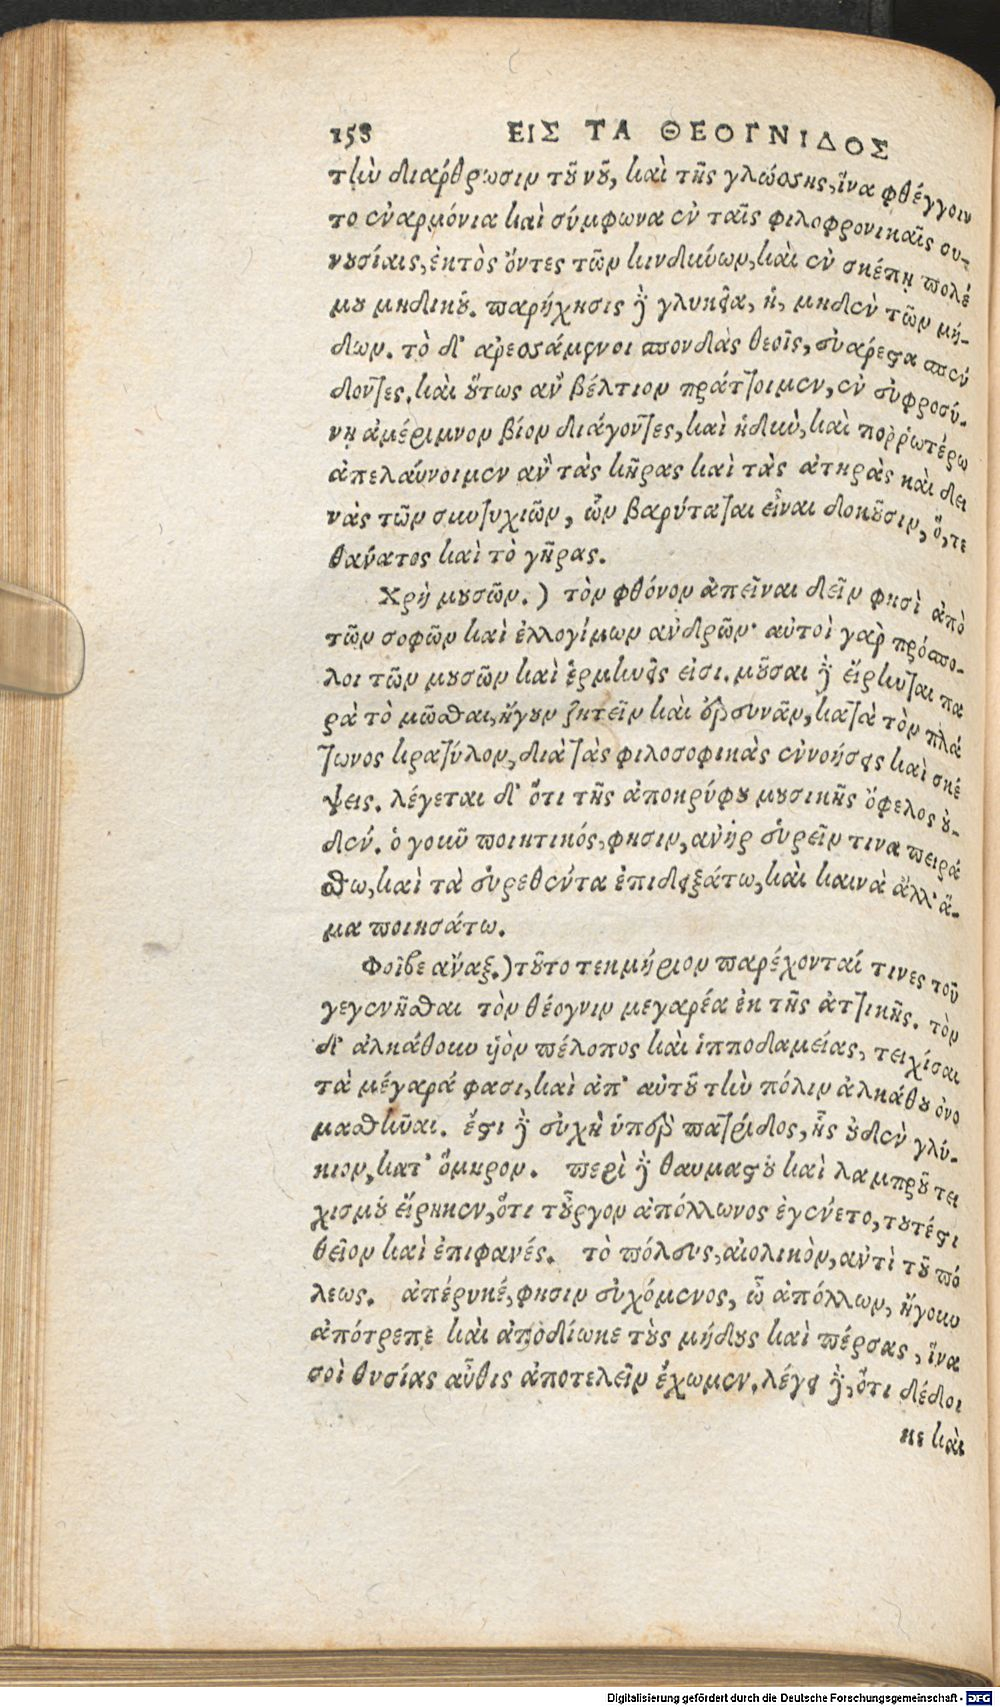 158 ΕΙΣ ΤΑ ΘΕΟΓΝΙΔΟΣ
τὴν διάρθρωσιν τοῦ νοῦ, καὶ τῆς γλώσσης, ἵνα φθέγγοιν
το ἐναρμόνια καὶ σύμφωνα ἐν ταῖς φιλοφρονικαῖς συ-
νουσίαις, ἐκτὸς ὄντες τῶν κινδύνων, καὶ ἐν σκέπῃ πολέ
μου μηδικοῦ. παρήχησις γὰρ γλυκεῖα, ἡ, μηδὲν τῶν μή-
δων. τὸ δ' ἀρεσσάμενοι σπονδὰς θεοῖς, εὐάρεστα σπέν
δοντες. καὶ οὕτως ἂν βέλτιον πράττοιμεν, ἐν εὐφροσύ-
νῃ ἀμέριμνον βίον διάγοντες, καὶ ἡδὺν, καὶ ποῤῥωτέρω
ἀπελαύνοιμεν ἂν τὰς κῆρας καὶ τὰς ἀτηρὰς καὶ δει
νὰς τῶν συντυχιῶν, ὧν βαρύταται εἶναι δοκοῦσιν, ὅ, τε
θάνατος καὶ τὸ γῆρας.
Χρὴ μουσῶν.) τὸν φθόνον ἀπεῖναι δεῖν φησὶ ἀπὸ
τῶν σοφῶν καὶ ἐλλογίμων ἀνδρῶν· αὐτοὶ γὰρ πρόσπο-
λοι τῶν μουσῶν καὶ ἑρμηνεῖς εἰσι. μοῦσαι γὰρ εἴρηνται πα
ρὰ τὸ μῶσθαι, ἤγουν ζητεῖν καὶ ἐρευνᾶν, κατὰ τὸν πλά
τωνος κρατύλον, διὰ τὰς φιλοσοφικὰς ἐννοήσεις καὶ σκέ
ψεις. λέγεται δ' ὅτι τῆς ἀποκρύφου μουσικῆς ὄφελος οὐ-
δέν. ὁ γοῦν ποιητικός, φησιν, ἀνὴρ εὑρεῖν τινα πειρά
σθω, καὶ τὰ εὑρεθέντα ἐπιδειξάτω, καὶ καινὰ ἄλλ' ἅ-
μα ποιησάτω.
Φοῖβε ἄναξ.) τοῦτο τεκμήριον παρέχονταί τινες τοῦ
γεγενῆσθαι τὸν θέογνιν μεγαρέα ἐκ τῆς ἀττικῆς. τὸν
δ' ἀλκάθουν υἱὸν πέλοπος καὶ ἱπποδαμείας, τειχίσαι
τὰ μέγαρά φασι, καὶ ἀπ' αὐτοῦ τὴν πόλιν ἀλκάθου ὀνο
μασθῆναι. ἔστι γὰρ εὐχὴ ὑπὲρ πατρίδος, ἧς οὐδὲν γλύ-
κιον, κατ' ὅμηρον. περὶ γὰρ θαυμαστοῦ καὶ λαμπροῦ τει
χισμοῦ εἴρηκεν, ὅτι τοὖργον ἀπόλλωνος ἐγένετο, τουτέστι
θεῖον καὶ ἐπιφανές. τὸ πόλευς, αἰολικὸν, ἀντὶ τοῦ πό
λεως. ἀπέρυκέ, φησιν εὐχόμενος, ὦ ἀπόλλων, ἤγουν
ἀπότρεπε καὶ ἀποδίωκε τοὺς μήδους καὶ πέρσας, ἵνα
σοὶ θυσίας αὖθις ἀποτελεῖν ἔχωμεν. λέγει γὰρ, ὅτι δέδοι
κε καὶ
Digitalisierung gefördert durch die Deutsche Forschungsgemeinschaft - DFG